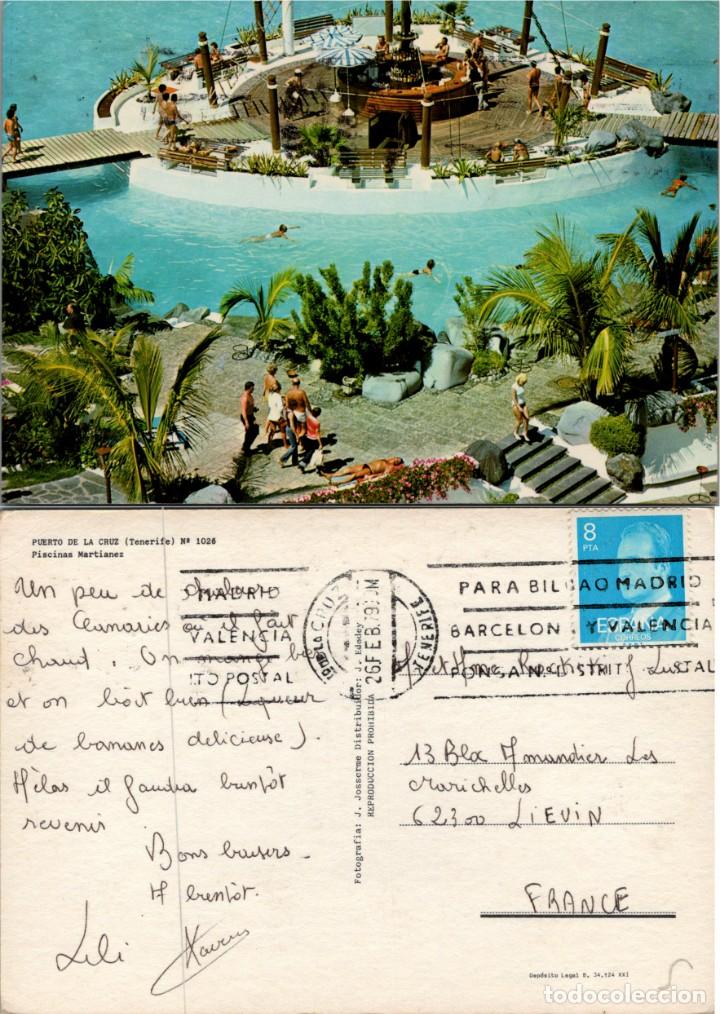 PUERTO DE LA CRUZ (Tenerife) Nº 1026
Piscinas Martianez
Un peu de chaleur
des Canaries où il fait
chaud. On mange bien
et on boit bien (Liqueur
de bananes délicieuse).
Hélas il faudra bientôt
revenir
Bons baisers.
A bientôt.
Lili
MADRID
VALENCIA
ITO POSTAL
26 FEB 79
TENERIFE
PARA BILBAO MADRID
BARCELON Y VALENCIA
PONGA Nº DISTRITO POSTAL
8
PTA
ESPAÑA
CORREOS
Fotografía: J. Josserme Distribuidor: J. Ededey
REPRODUCCION PROHIBIDA
M et Mme
13 Bloc Les
62300 LIEVIN
FRANCE
Depósito Legal B. 34.124 XXI
todocoleccion